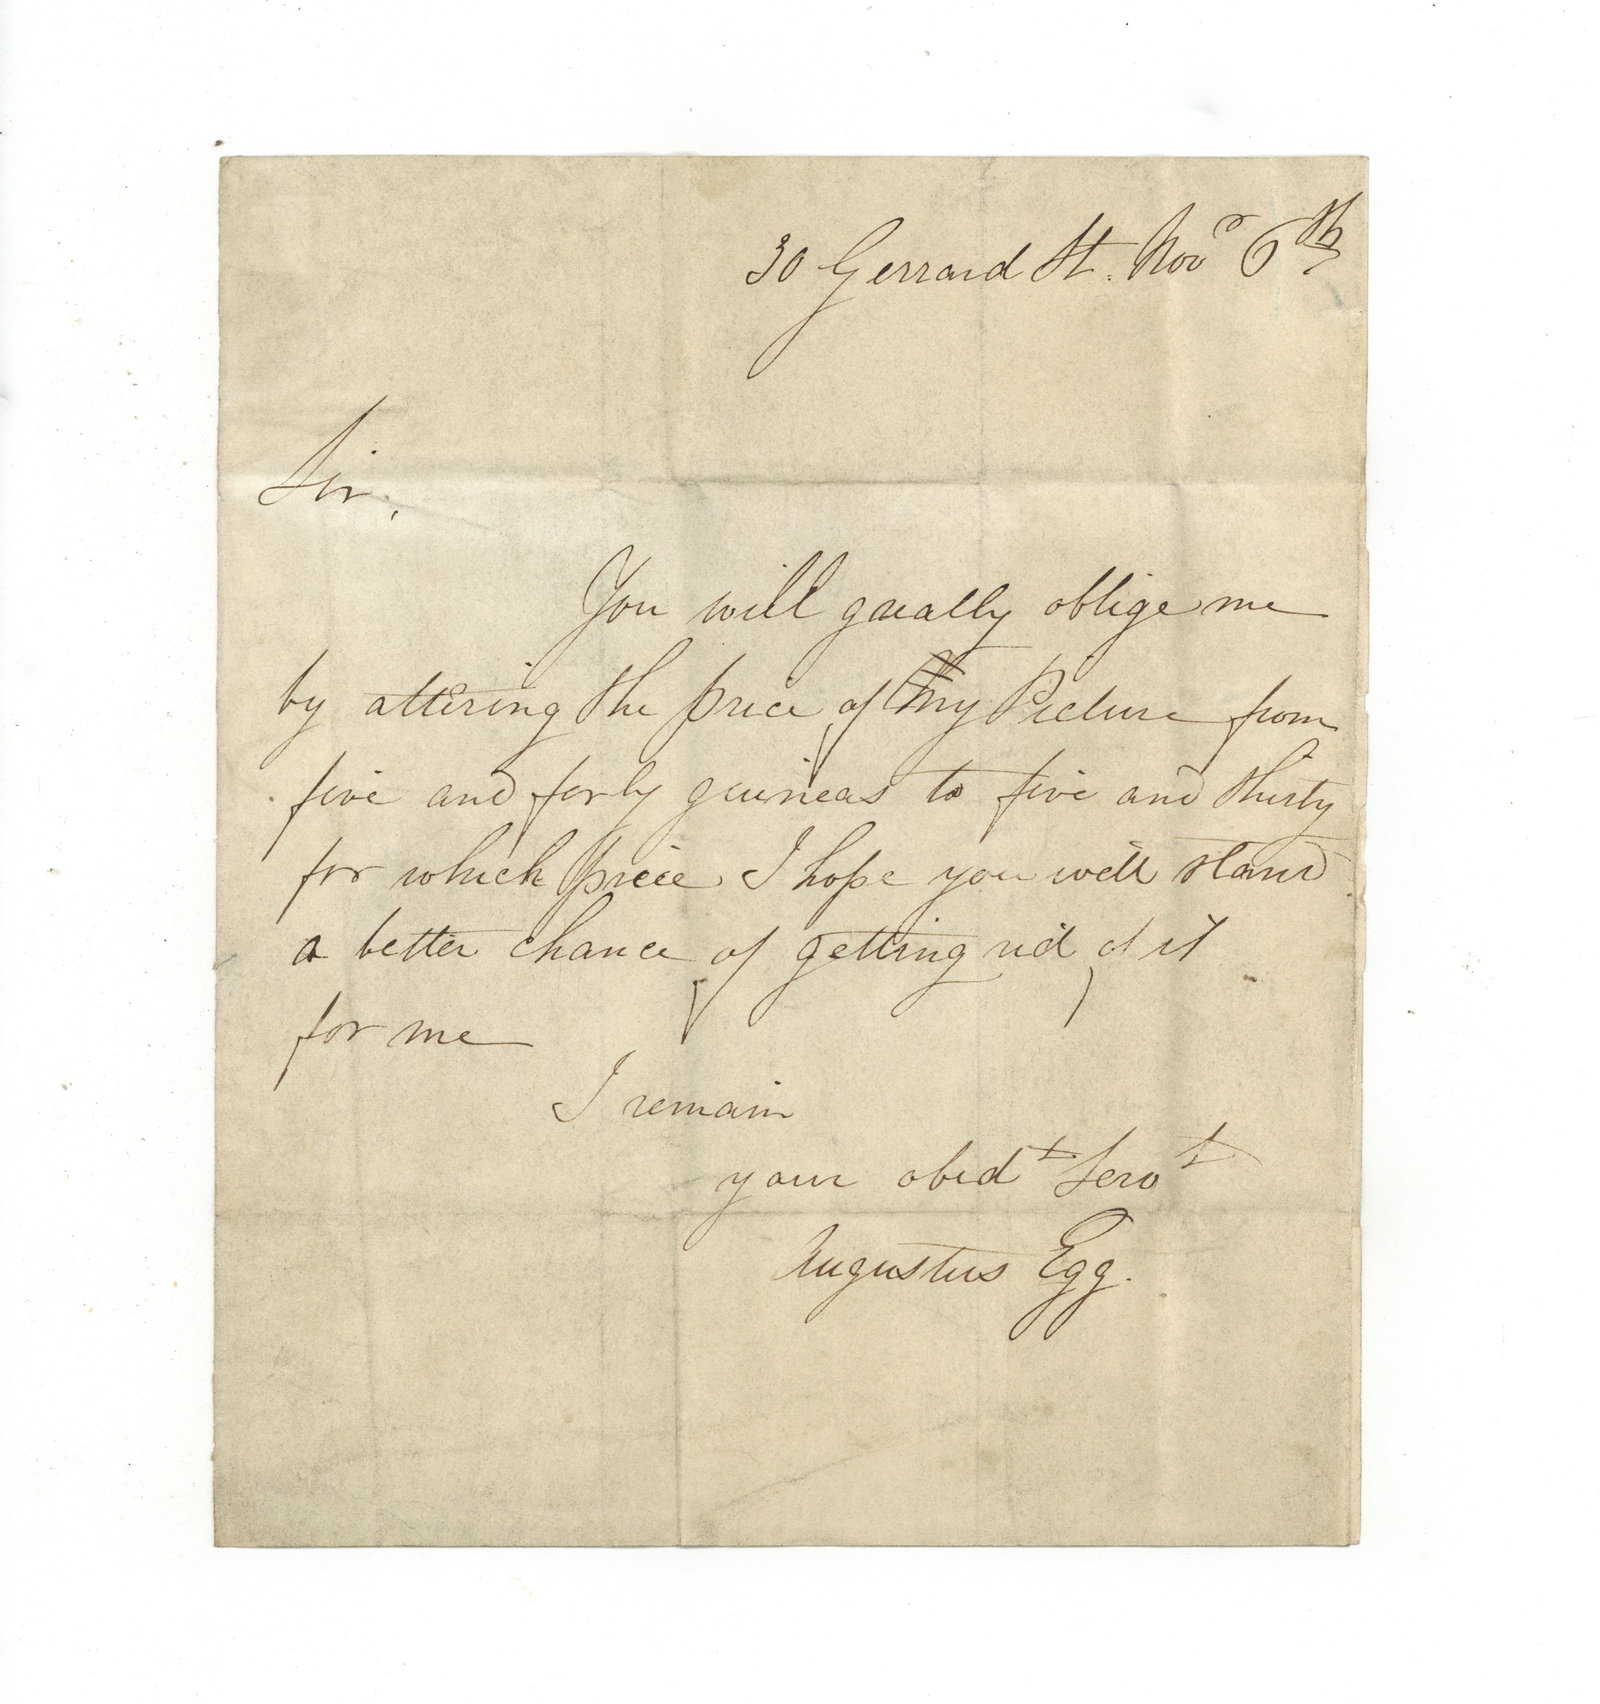 30 Gerrard St. Novr 6th
Sir,
You will greatly oblige me
by altering the price of my Picture from
five and forty guineas to five and thirty
for which price I hope you will stand
a better chance of getting rid of it
for me
I remain
your obedt Servt
Augustus Egg.